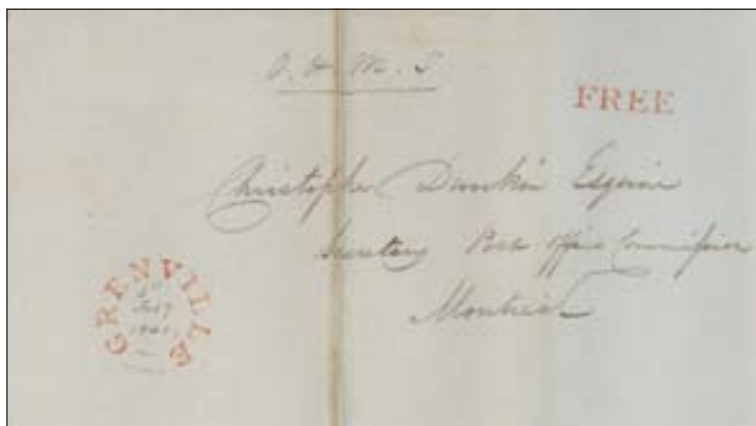 O. H. M. S
FREE
Christopher Dunkin Esquire
Secretary Post Office Commission
Montreal
GRENVILLE
July
1841